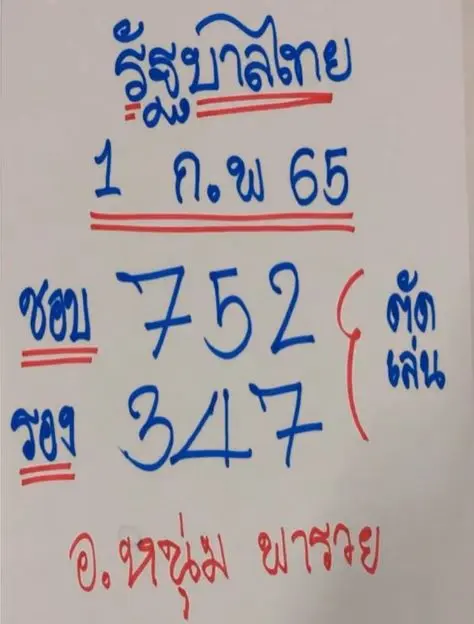 รัฐบาลไทย
1 ก.พ 65
ชอบ 752
รอง 347
ตัด
เล่น
อ.หนุ่ม พารวย